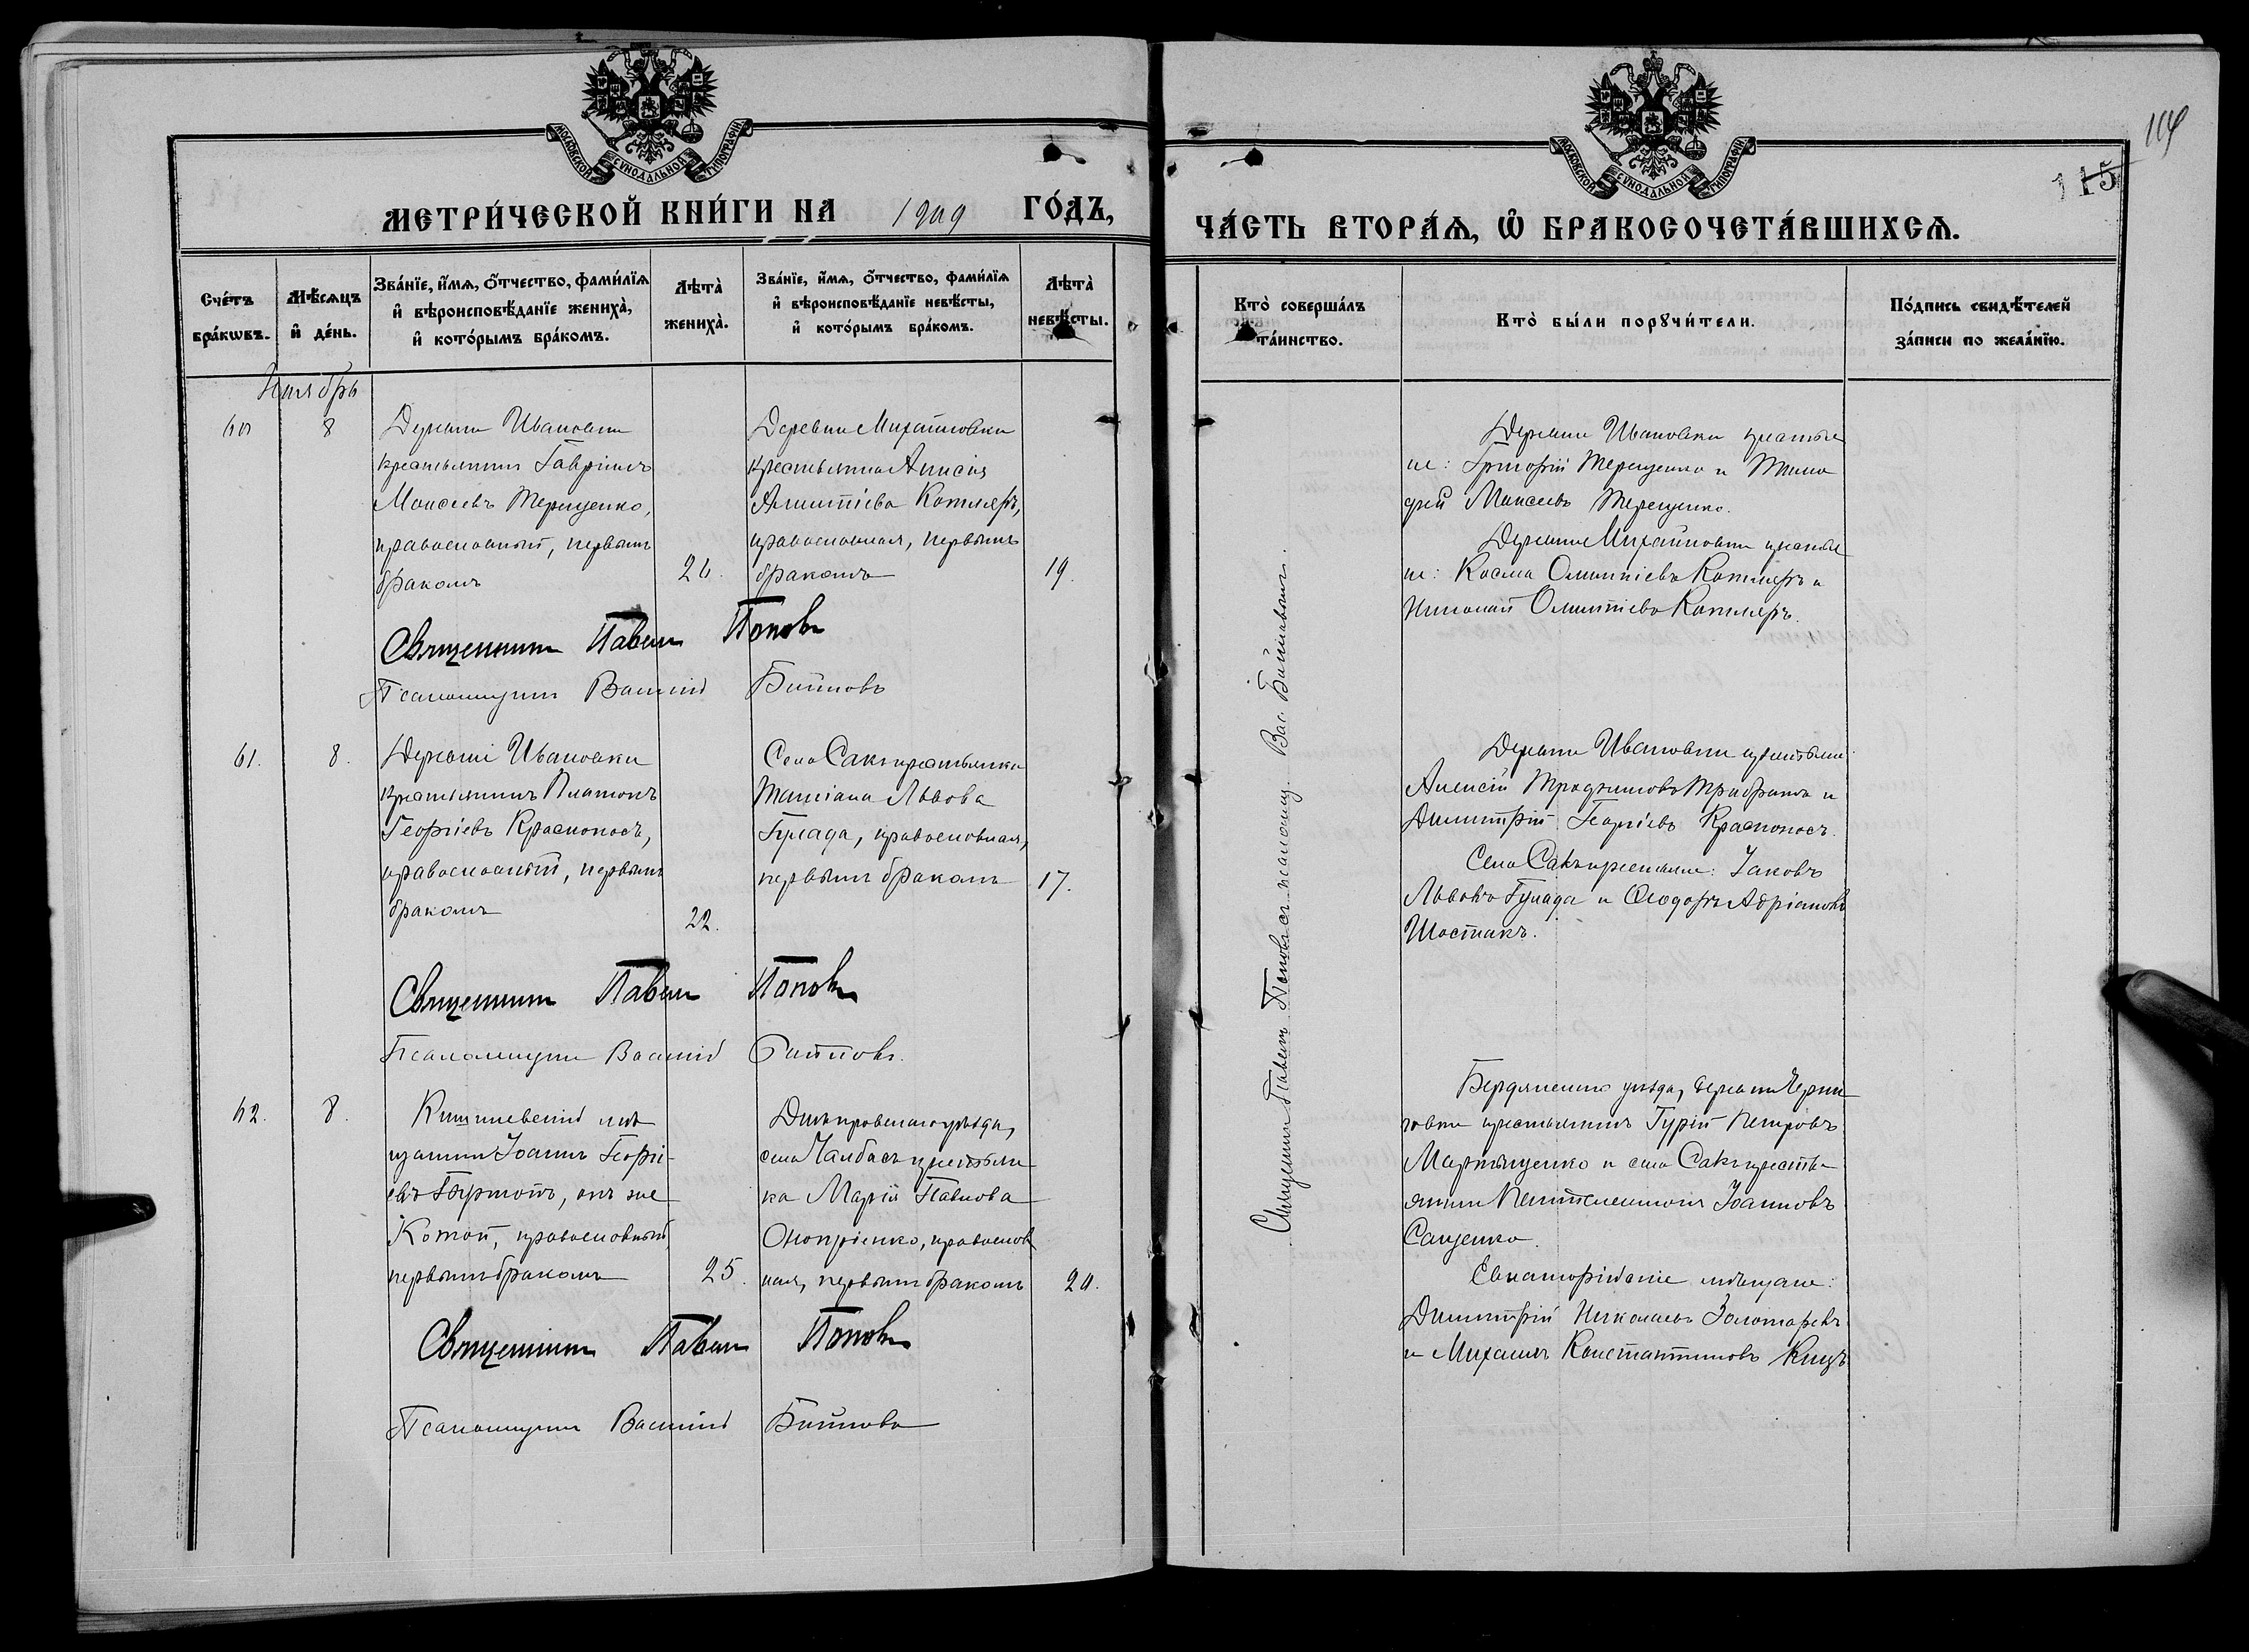 МОСКОВСКОЙ СѴНОДАЛЬНОЙ ТИПОГРАФІИ
МЕТРИ́ЧЕСКОЙ КНИ́ГИ НА 1909 ГО́ДЪ,
Сче́тъ бра́кѡвъ.
Мѣ́сяцъ и҆ де́нь.
Зва́нїе, и҆́мѧ, ѻ҆́тчество, фами́лїѧ
и҆ вѣроисповѣ́данїе жениха̀,
и҆ кото́рымъ бра́комъ.
Лѣта̀
жениха̀.
Зва́нїе, и҆́мѧ, ѻ҆́тчество, фами́лїѧ
и҆ вѣроисповѣ́данїе невѣ́сты,
и҆ кото́рымъ бра́комъ.
Лѣта̀
невѣ́сты.
Ноябрь
60
8
Деревни Ивановки
крестьянинъ Гавріилъ
Моисеевъ Терещенко,
православный, первымъ
бракомъ
26.
Деревни Михайловки
крестьянка Анисія
Котляръ,
православная, первымъ
бракомъ
19.
Священникъ Павелъ Поповъ
Псаломщикъ Василій
61.
8.
Деревни Ивановки
крестьянинъ Платонъ
Георгіевъ Красноносъ,
православный, первымъ
бракомъ
22.
Села Сакъ крестьянка
Татіана Львова
Гулада, православная,
первымъ бракомъ
17.
Священникъ Павелъ Поповъ
Псаломщикъ Василій
62.
8.
Кишиневскій мѣ-
щанинъ Іоаннъ Георгі-
евъ онъ же
православный,
первымъ бракомъ
25.
Днѣпровскаго уѣзда,
села Чалбасъ крестьян-
ка Марія Павлова
Онопріенко, православ
ная, первымъ бракомъ
20.
Священникъ Павелъ Поповъ
Псаломщикъ Василій
114
115
МОСКОВСКОЙ СѴНОДАЛЬНОЙ ТИПОГРАФІИ
ЧА́СТЬ ВТОРА́Ѧ, Ѡ҆ БРАКОСОЧЕТА́ВШИХСѦ.
Кто̀ соверша́лъ
та́инство.
Кто̀ бы́ли порꙋчи́тели.
По́дпись свидѣ́телей
за́писи по жела́нїю.
Священникъ Павелъ Поповъ съ псаломщ. Вас.
Деревни Ивановки крестья
не: Григорій Терещенко и Тимо
фей Моисеевъ Терещенко.
Деревни Михайловки крестья
не: Косма Котляръ и
Николай Котляръ.
Деревни Ивановки крестьяне
Алексій Трофимовъ и
Димитрій Георгіевъ Красноносъ.
Села Сакъ крестьяне: Іаковъ
Львовъ Гулада и Ѳеодоръ Адріановъ
Шостакъ.
Бердянскаго уѣзда, деревни Черни
говки крестьянинъ Гурій Петровъ
Мартыщенко и села Сакъ кресть-
янинъ Іоанновъ
Саценко.
Евпаторійскіе мѣщане:
Димитрій Николаевъ Золотаревъ
и Михаилъ Константиновъ